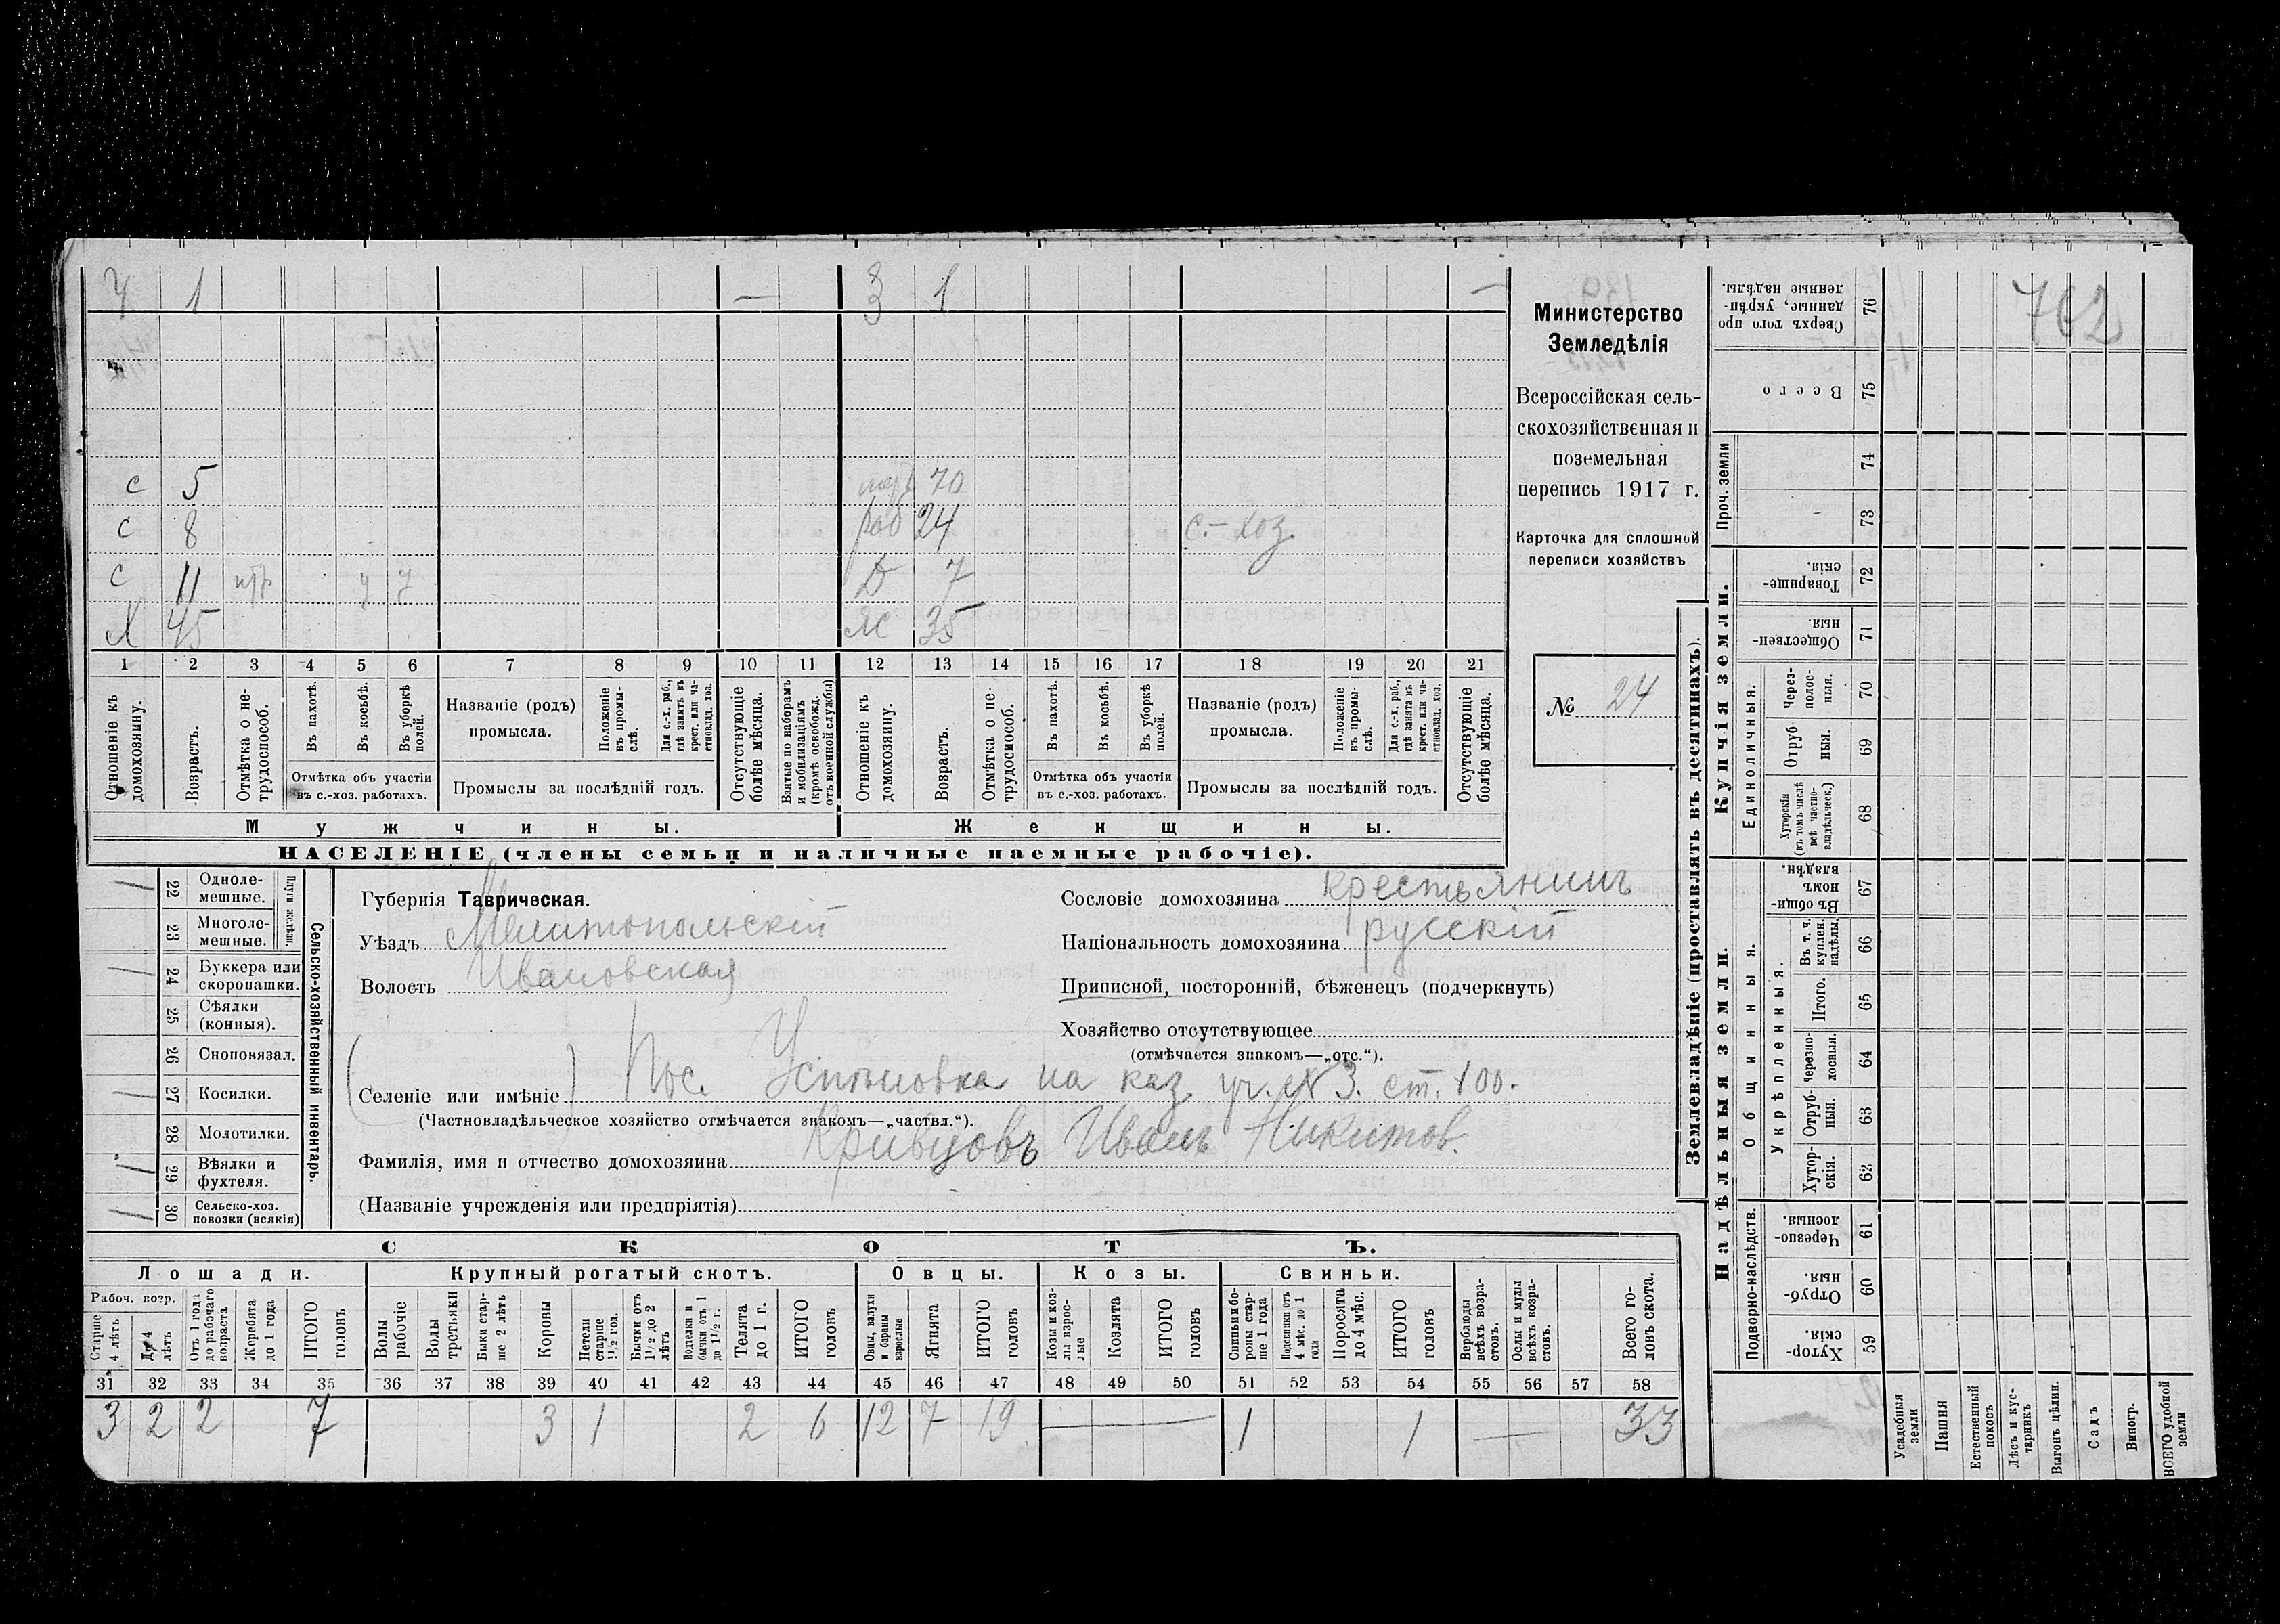 4 1 — 3 1 —
с 5 70
с 8 раб 24 с.-хоз.
с 11 у у д 7
х 45 ж 35
1 2 3 4 5 6 7 8 9 10 11 12 13 14 15 16 17 18 19 20 21
Отношеніе къ домохозяину.
Возрастъ.
Отмѣтка о нетрудоспособ.
Въ пахотѣ.
Въ косьбѣ.
Въ уборкѣ полей.
Отмѣтка объ участіи въ с.-хоз. работахъ.
Названіе (родъ) промысла.
Положеніе въ промыслѣ.
Для с.-х. раб., гдѣ занятъ въ крест. или частновлад. хоз.
Промыслы за послѣдній годъ.
Отсутствующіе болѣе мѣсяца.
Взятые по наборамъ и мобилизаціямъ (кромѣ освобожд. отъ военной службы)
Отношеніе къ домохозяину.
Возрастъ.
Отмѣтка о нетрудоспособ.
Въ пахотѣ.
Въ косьбѣ.
Въ уборкѣ полей.
Отмѣтка объ участіи въ с.-хоз. работахъ.
Названіе (родъ) промысла.
Положеніе въ промыслѣ.
Для с.-х. раб., гдѣ занята въ крест. или частновлад. хоз.
Промыслы за послѣдній годъ.
Отсутствующіе болѣе мѣсяца.
Мужчины. Женщины.
НАСЕЛЕНІЕ (члены семьи и наличные наемные рабочіе).
Министерство
Земледѣлія
Всероссійская сель-
скохозяйственная и
поземельная
перепись 1917 г.
Карточка для сплошной
переписи хозяйствъ
№ 24
Сельско-хозяйственный инвентарь.
Плуги желѣзн.
22 Одноле-
мешные.
23 Многоле-
мешные.
24 Буккера или
скоропашки.
25 Сѣялки
(конныя).
26 Сноповязал.
27 Косилки.
28 Молотилки.
29 Вѣялки и
фухтеля.
30 Сельско-хоз.
повозки (всякія)
Губернія Таврическая.
Уѣздъ Мелитопольскій
Волость Ивановская
Сословіе домохозяина крестьянинъ
Національность домохозяина русскій
Приписной, посторонній, бѣженецъ (подчеркнуть)
Хозяйство отсутствующее
(отмѣчается знакомъ—„отс.“).
Селеніе или имѣніе Пос. на каз. уч. № 3. ст. 100.
(Частновладѣльческое хозяйство отмѣчается знакомъ—„частвл.“).
Фамилія, имя и отчество домохозяина Кривцовъ Иванъ Никитов.
(Названіе учрежденія или предпріятія)
СКОТЪ.
Лошади. Крупный рогатый скотъ. Овцы. Козы. Свиньи.
Рабоч. возр.
Старше 4 лѣтъ
До 4 лѣтъ
Отъ 1 года до рабочаго возраста
Жеребята до 1 года
ИТОГО головъ
Волы рабочіе
Волы третьяки
Быки старше 2 лѣтъ
Коровы
Нетели старше 1½ год.
Бычки отъ 1½ до 2 лѣтъ
Подтелки и бычки отъ 1 до 1½ г.
Телята до 1 г.
ИТОГО головъ
Овцы, валухи и бараны взрослые
Ягнята
ИТОГО головъ
Козы и козлы взрослые
Козлята
ИТОГО головъ
Свиньи и бороны старше 1 года
Подсвинки отъ 4 мѣс. до 1 года
Поросята до 4 мѣс.
ИТОГО головъ
Верблюды всѣхъ возрастовъ.
Ослы и мулы всѣхъ возрастовъ.
Всего головъ скота.
31 32 33 34 35 36 37 38 39 40 41 42 43 44 45 46 47 48 49 50 51 52 53 54 55 56 57 58
3 2 2 7 3 1 2 6 12 7 19 — 1 1 — 33
Землевладѣніе (проставлять въ десятинахъ).
762
76 Сверхъ того проданные, укрѣпленные надѣлы.
75 Всего
Проч. земли
74
73
Купчія земли.
72 Товарищескія.
71 Общественныя.
Единоличныя.
70 Черезполосныя.
69 Отрубныя.
68 Хуторскія (въ томъ числѣ всѣ частновладѣльческ.)
Надѣльныя земли.
Общинныя.
67 Въ общинномъ владѣн.
Укрѣпленныя.
66 Въ т. ч. куплен. надѣлы
65 Итого.
64 Черезполосныя.
63 Отрубныя.
62 Хуторскія.
Подворно-наслѣдств.
61 Черезполосныя.
60 Отрубныя.
59 Хуторскія.
Усадебныя земли
Пашня
Естественный покосъ
Лѣсъ и кустарникъ
Выгонъ цѣлин.
Садъ
Виногр.
ВСЕГО удобной земли